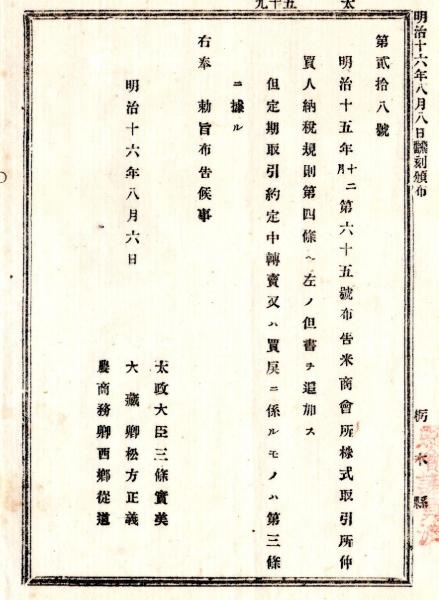 明治十六年八月八日飜刻頒布
栃木縣
第貳拾八號
明治十五年十二月第六十五號布告米商會所株式取引所仲
買人納稅規則第四條ヘ左ノ但書ヲ追加ス
但定期取引約定中轉賣又ハ買戾ニ係ルモノハ第三條
ニ據ル
右奉 勅旨布告候事
明治十六年八月六日
太政大臣三條實美
大藏卿松方正義
農商務卿西鄕從道